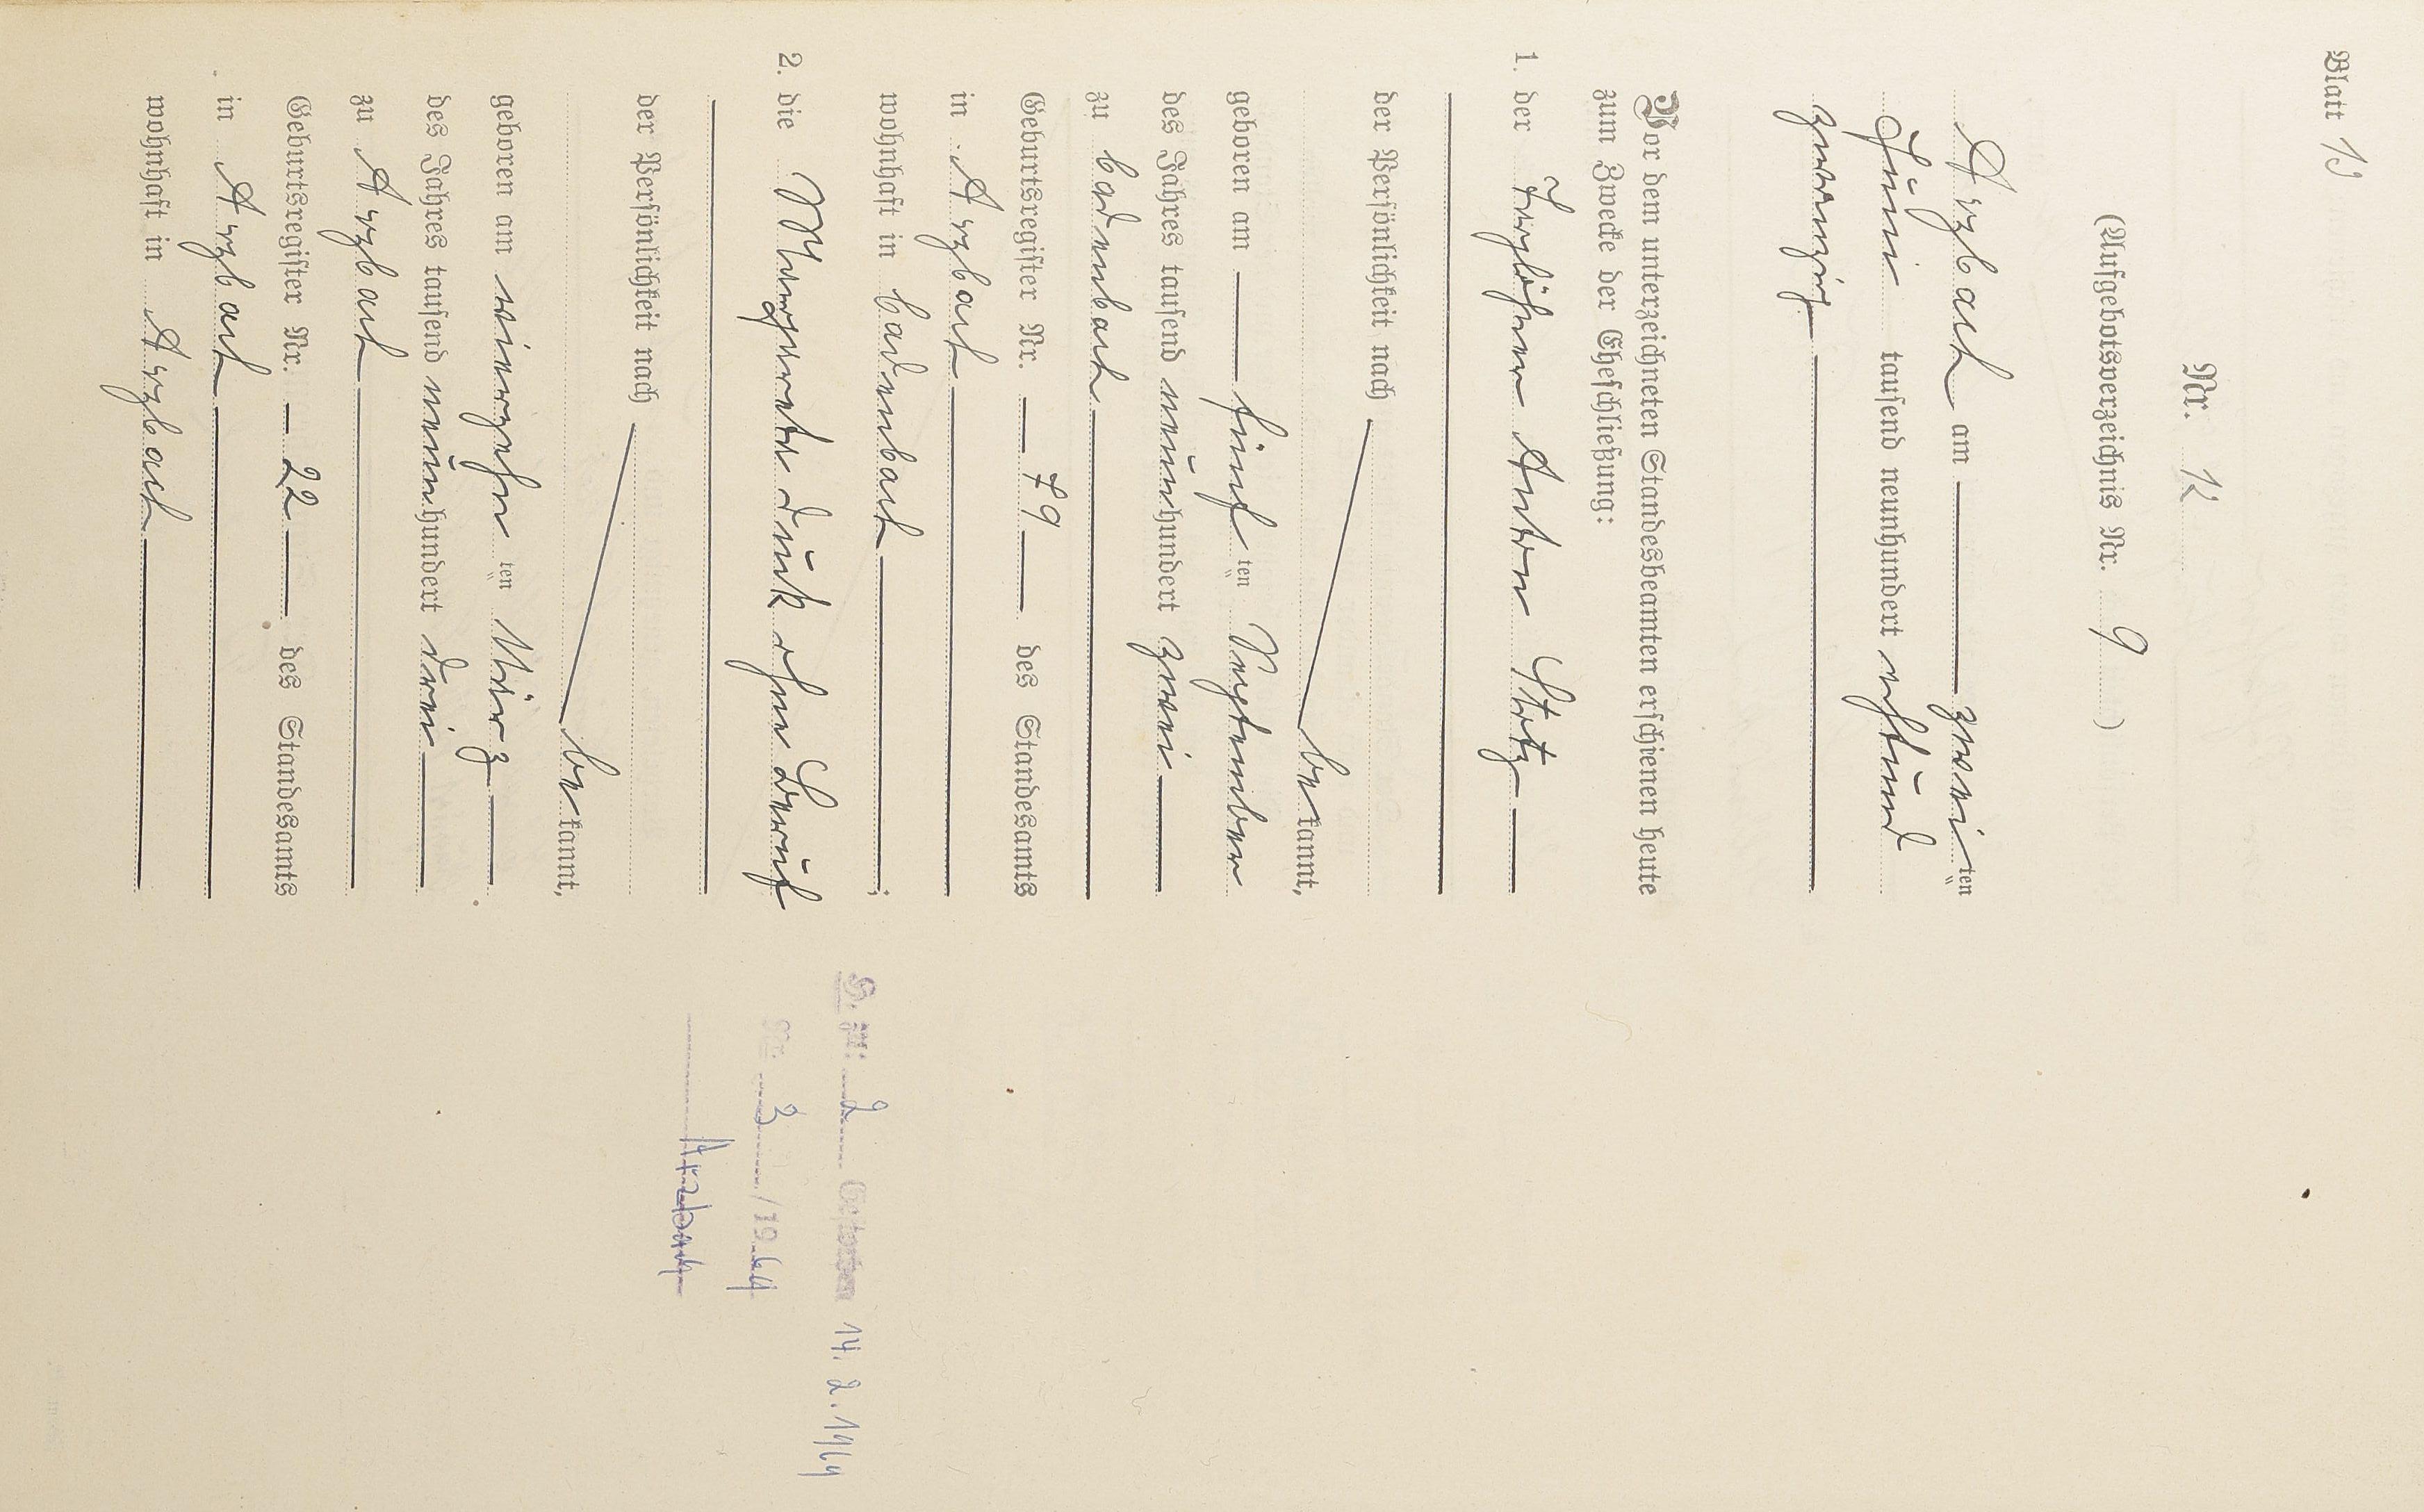 Blatt 13
Nr. 12
(Aufgebotsverzeichnis Nr. 9 )
Arzbach am zweiten
Juni tausend neunhundert achtund
zwanzig
Vor dem unterzeichneten Standesbeamten erschienen heute
zum Zwecke der Eheschließung:
1. der Taglöhner Anton Stotz
der Persönlichkeit nach
bekannt,
geboren am fünften September
des Jahres tausend neunhundert zwei
zu Cadenbach
Geburtsregister Nr. 79 des Standesamts
in Arzbach
wohnhaft in Cadenbach ;
2. die Margareta ohne Beruf
der Persönlichkeit nach
bekannt,
geboren am vierzehnten März
des Jahres tausend neunhundert drei
zu Arzbach
Geburtsregister Nr. 22 des Standesamts
in Arzbach
wohnhaft in Arzbach
H. zu: 2 Gestorben 14. 2. 1964
Nr. 3 / 1964
Arzbach